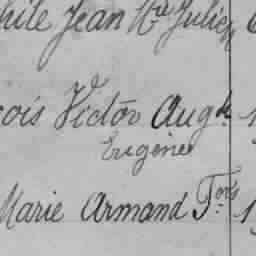 hile Jean Mie Julien
çois Victor Augte
Eugène
Marie Armand Fois